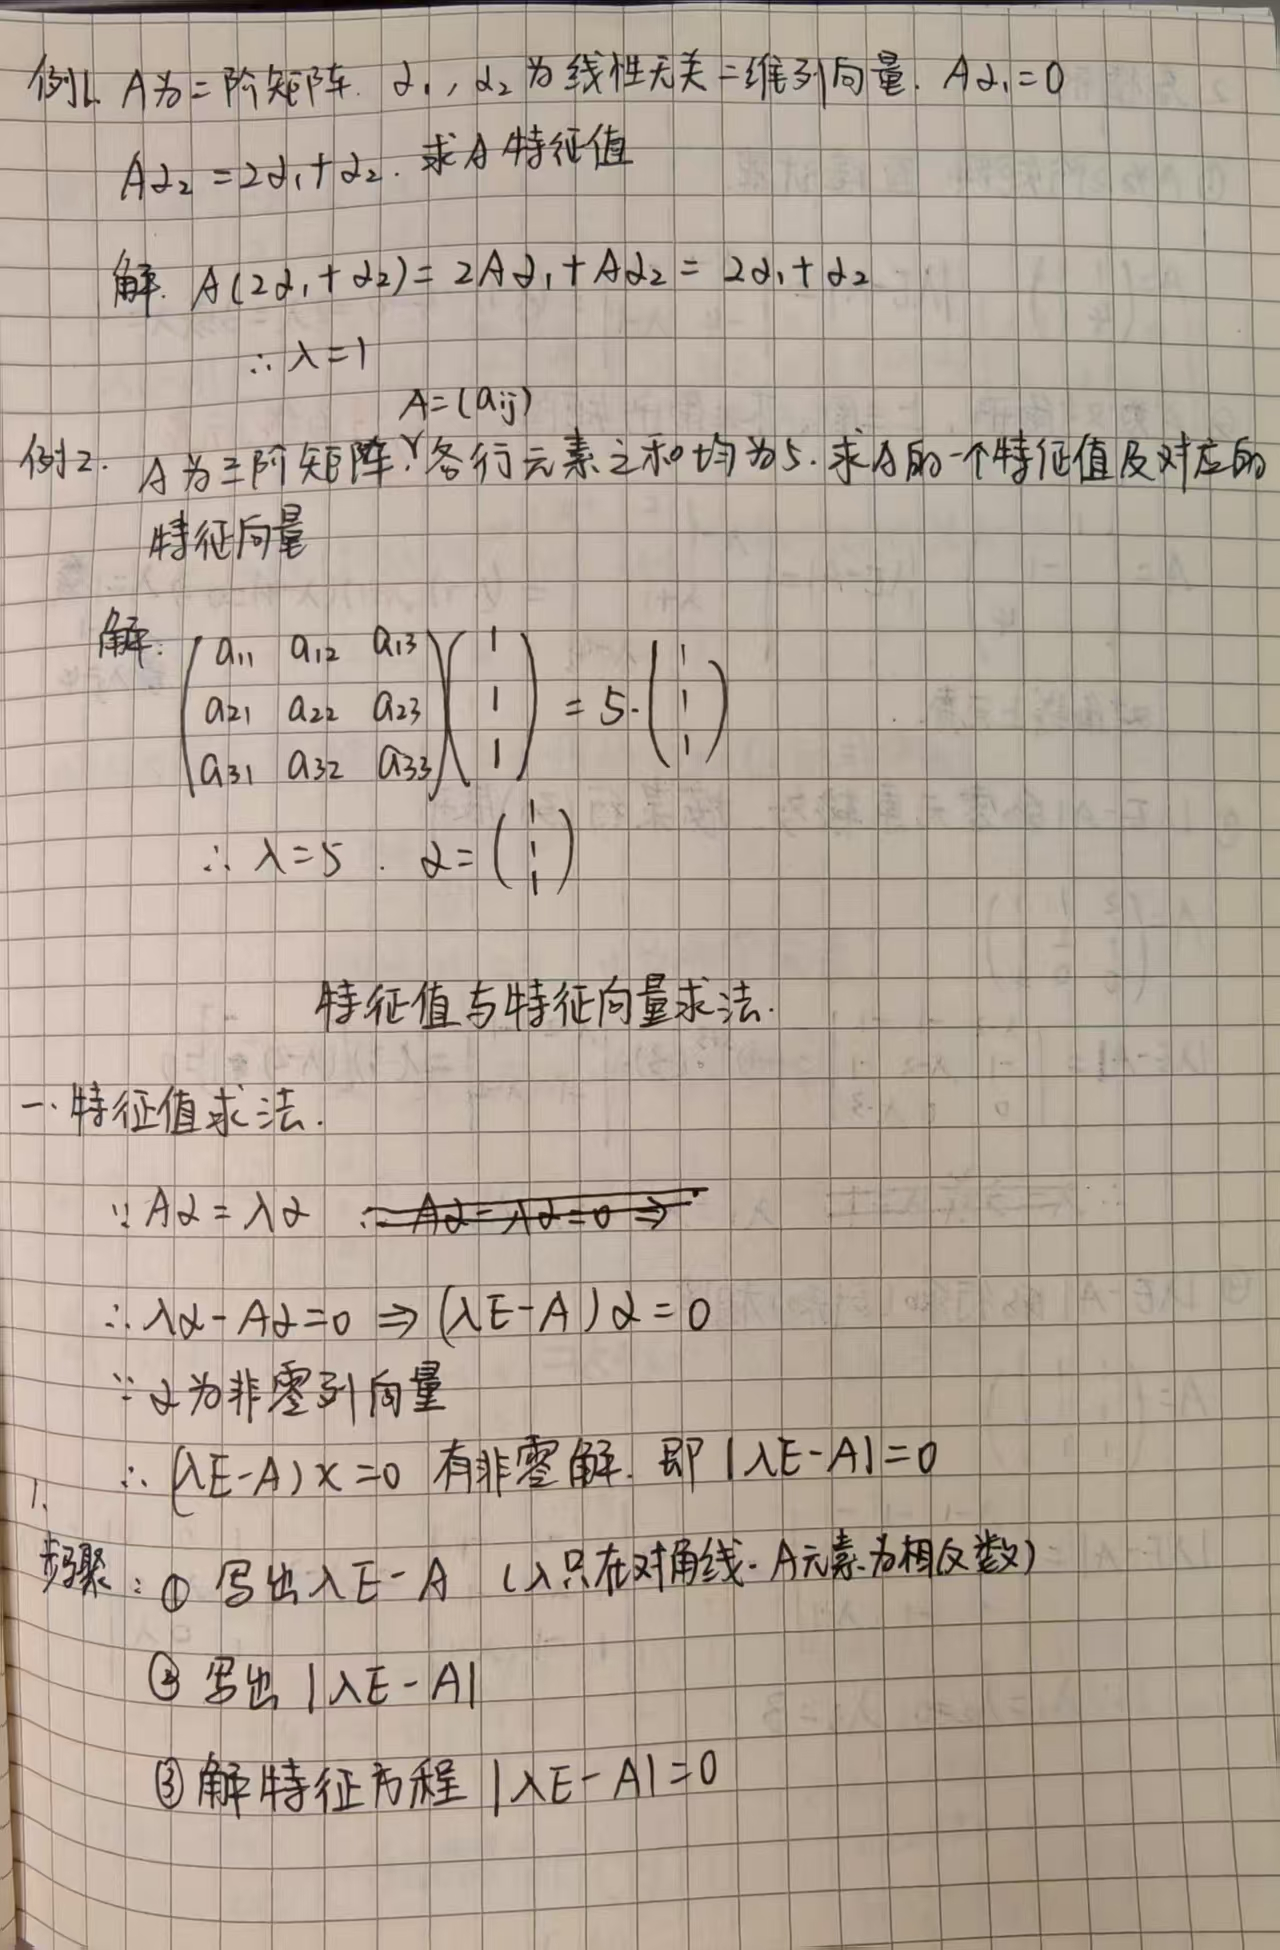 例1. A为二阶矩阵. α₁, α₂ 为线性无关二维列向量. Aα₁=0
Aα₂=2α₁+α₂. 求A特征值
解. A(2α₁+α₂)=2Aα₁+Aα₂=2α₁+α₂
∴ λ=1
A=(aij)
例2. A为三阶矩阵, 各行元素之和均为5. 求A的一个特征值及对应的
特征向量
解:
a₁₁ a₁₂ a₁₃ 1 1
a₂₁ a₂₂ a₂₃ 1 = 5· 1
a₃₁ a₃₂ a₃₃ 1 1
∴ λ=5. α=(1 1 1)
特征值与特征向量求法.
一. 特征值求法.
∵ Aα=λα ∴ Aα-λα=0 ⇒
∴ λα-Aα=0 ⇒ (λE-A)α=0
∵ α为非零列向量
∴ (λE-A)x=0 有非零解. 即 |λE-A|=0
1.
步骤: ① 写出λE-A (λ只在对角线. A元素为相反数)
② 写出 |λE-A|
③ 解特征方程 |λE-A|=0